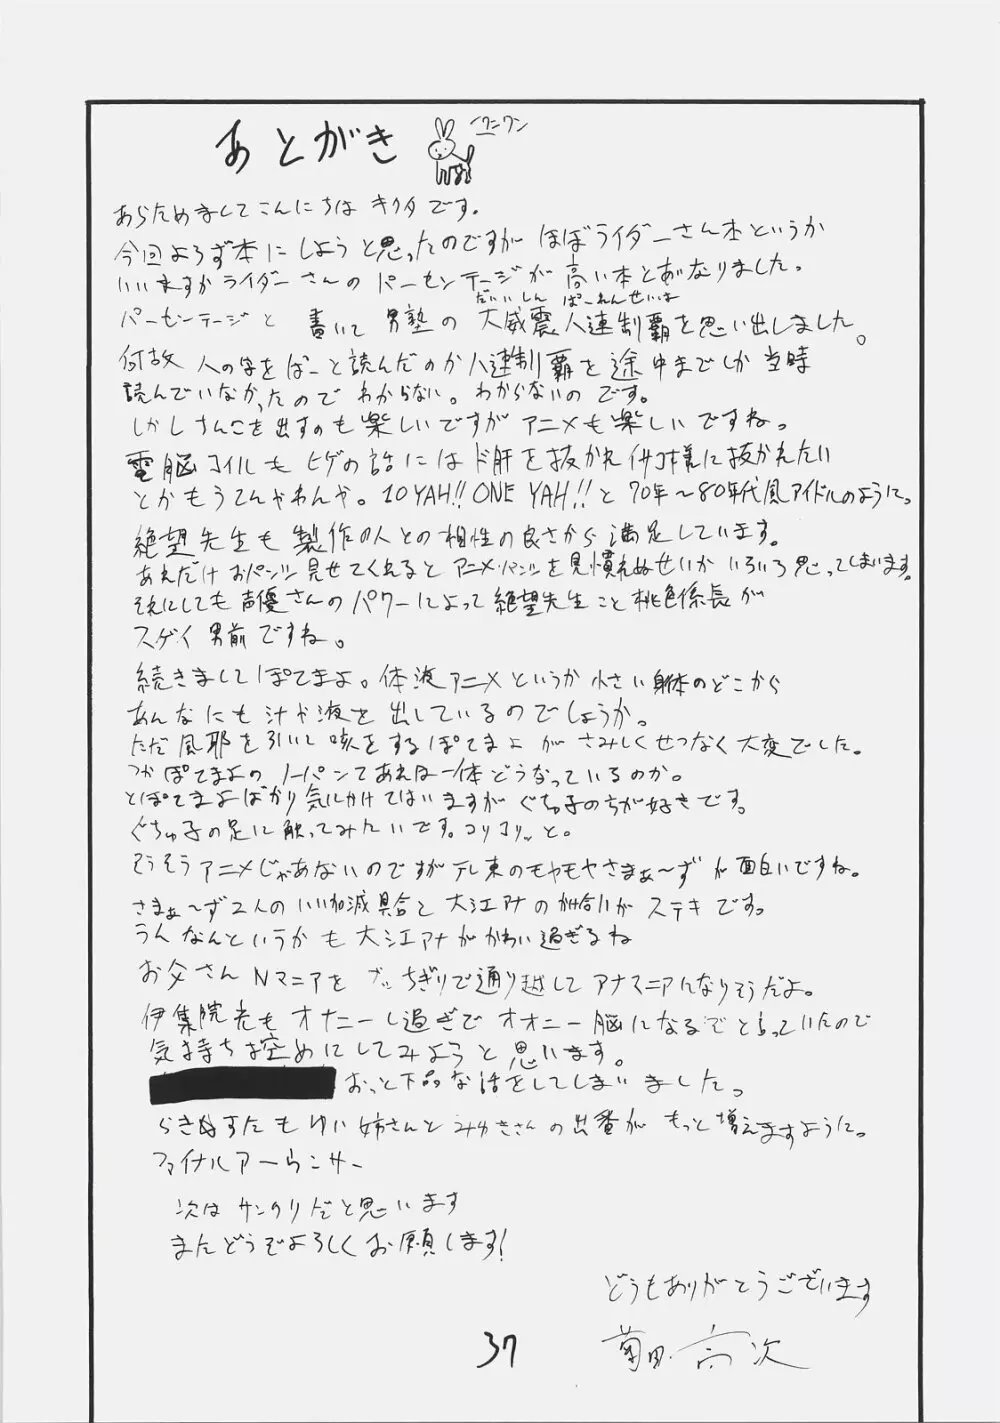 あとがき
ワンワン
あらためましてこんにちは キクタです。
今回よろず本にしようと思ったのですが ほぼライダーさん本というか
いいますかライダーさんのパーセンテージが高い本とあいなりました。
だいいしん ぱーれんせいは
パーセンテージと 書いて 男塾の 大威震八連制覇を思い出しました。
何故 八の字をぱーと読んだのか八連制覇を途中までしか当時
読んでいなかったのでわからない。わからないのです。
しかしまんこを出すのも楽しいですがアニメも楽しいですね。
電脳コイルも ヒゲの話には ド肝を抜かれ イサコ様に抜かれたい
とかもうてんやわんや。10YAH!! ONE YAH!!と 70年〜80年代風アイドルのように。
絶望先生も 製作の人との相性の良さから 満足しています。
あれだけ おパンツ見せてくれると アニメ・パンツを見慣れぬせいか いろいろ思ってしまいます。
それにしても声優さんのパワーによって絶望先生こと桃色係長が
スゲイ男前ですね。
続きましてぽてまよ。体液アニメというか小さい身体のどこから
あんなにも汁が液を出しているのでしょうか。
ただ風邪を引いて咳をするぽてまよがさみしくせつなく大変でした。
つかぽてまよのノーパンであれは一体どうなっているのか。
とぽてまよばかり気にかけてはいますがぐちゅ子の方が好きです。
ぐちゅ子の足に触ってみたいです。コリコリッと。
そうそうアニメじゃあないのですがテレ東のモヤモヤさまぁ〜ずが面白いですね。
さまぁ〜ず2人のいい加減具合と大江アナの絡合いがステキです。
うん なんというかも 大江アナがかわい過ぎるね
お父さん Nマニアを ブッちぎりで通り越して アナマニアになりそうだよ。
伊集院光も オナニーし過ぎで オオニー脳になるぞと言っていたので
気持ち控めにしてみようと思います。
おっと下品な話をしてしまいました。
らき☆すたも ゆい姉さんと みゆきさんの出番が もっと増えますように。
ファイナルアーウンサー
次は サンクリだと思います
またどうぞよろしくお願します!
どうもありがとうございます
菊田 高次
37